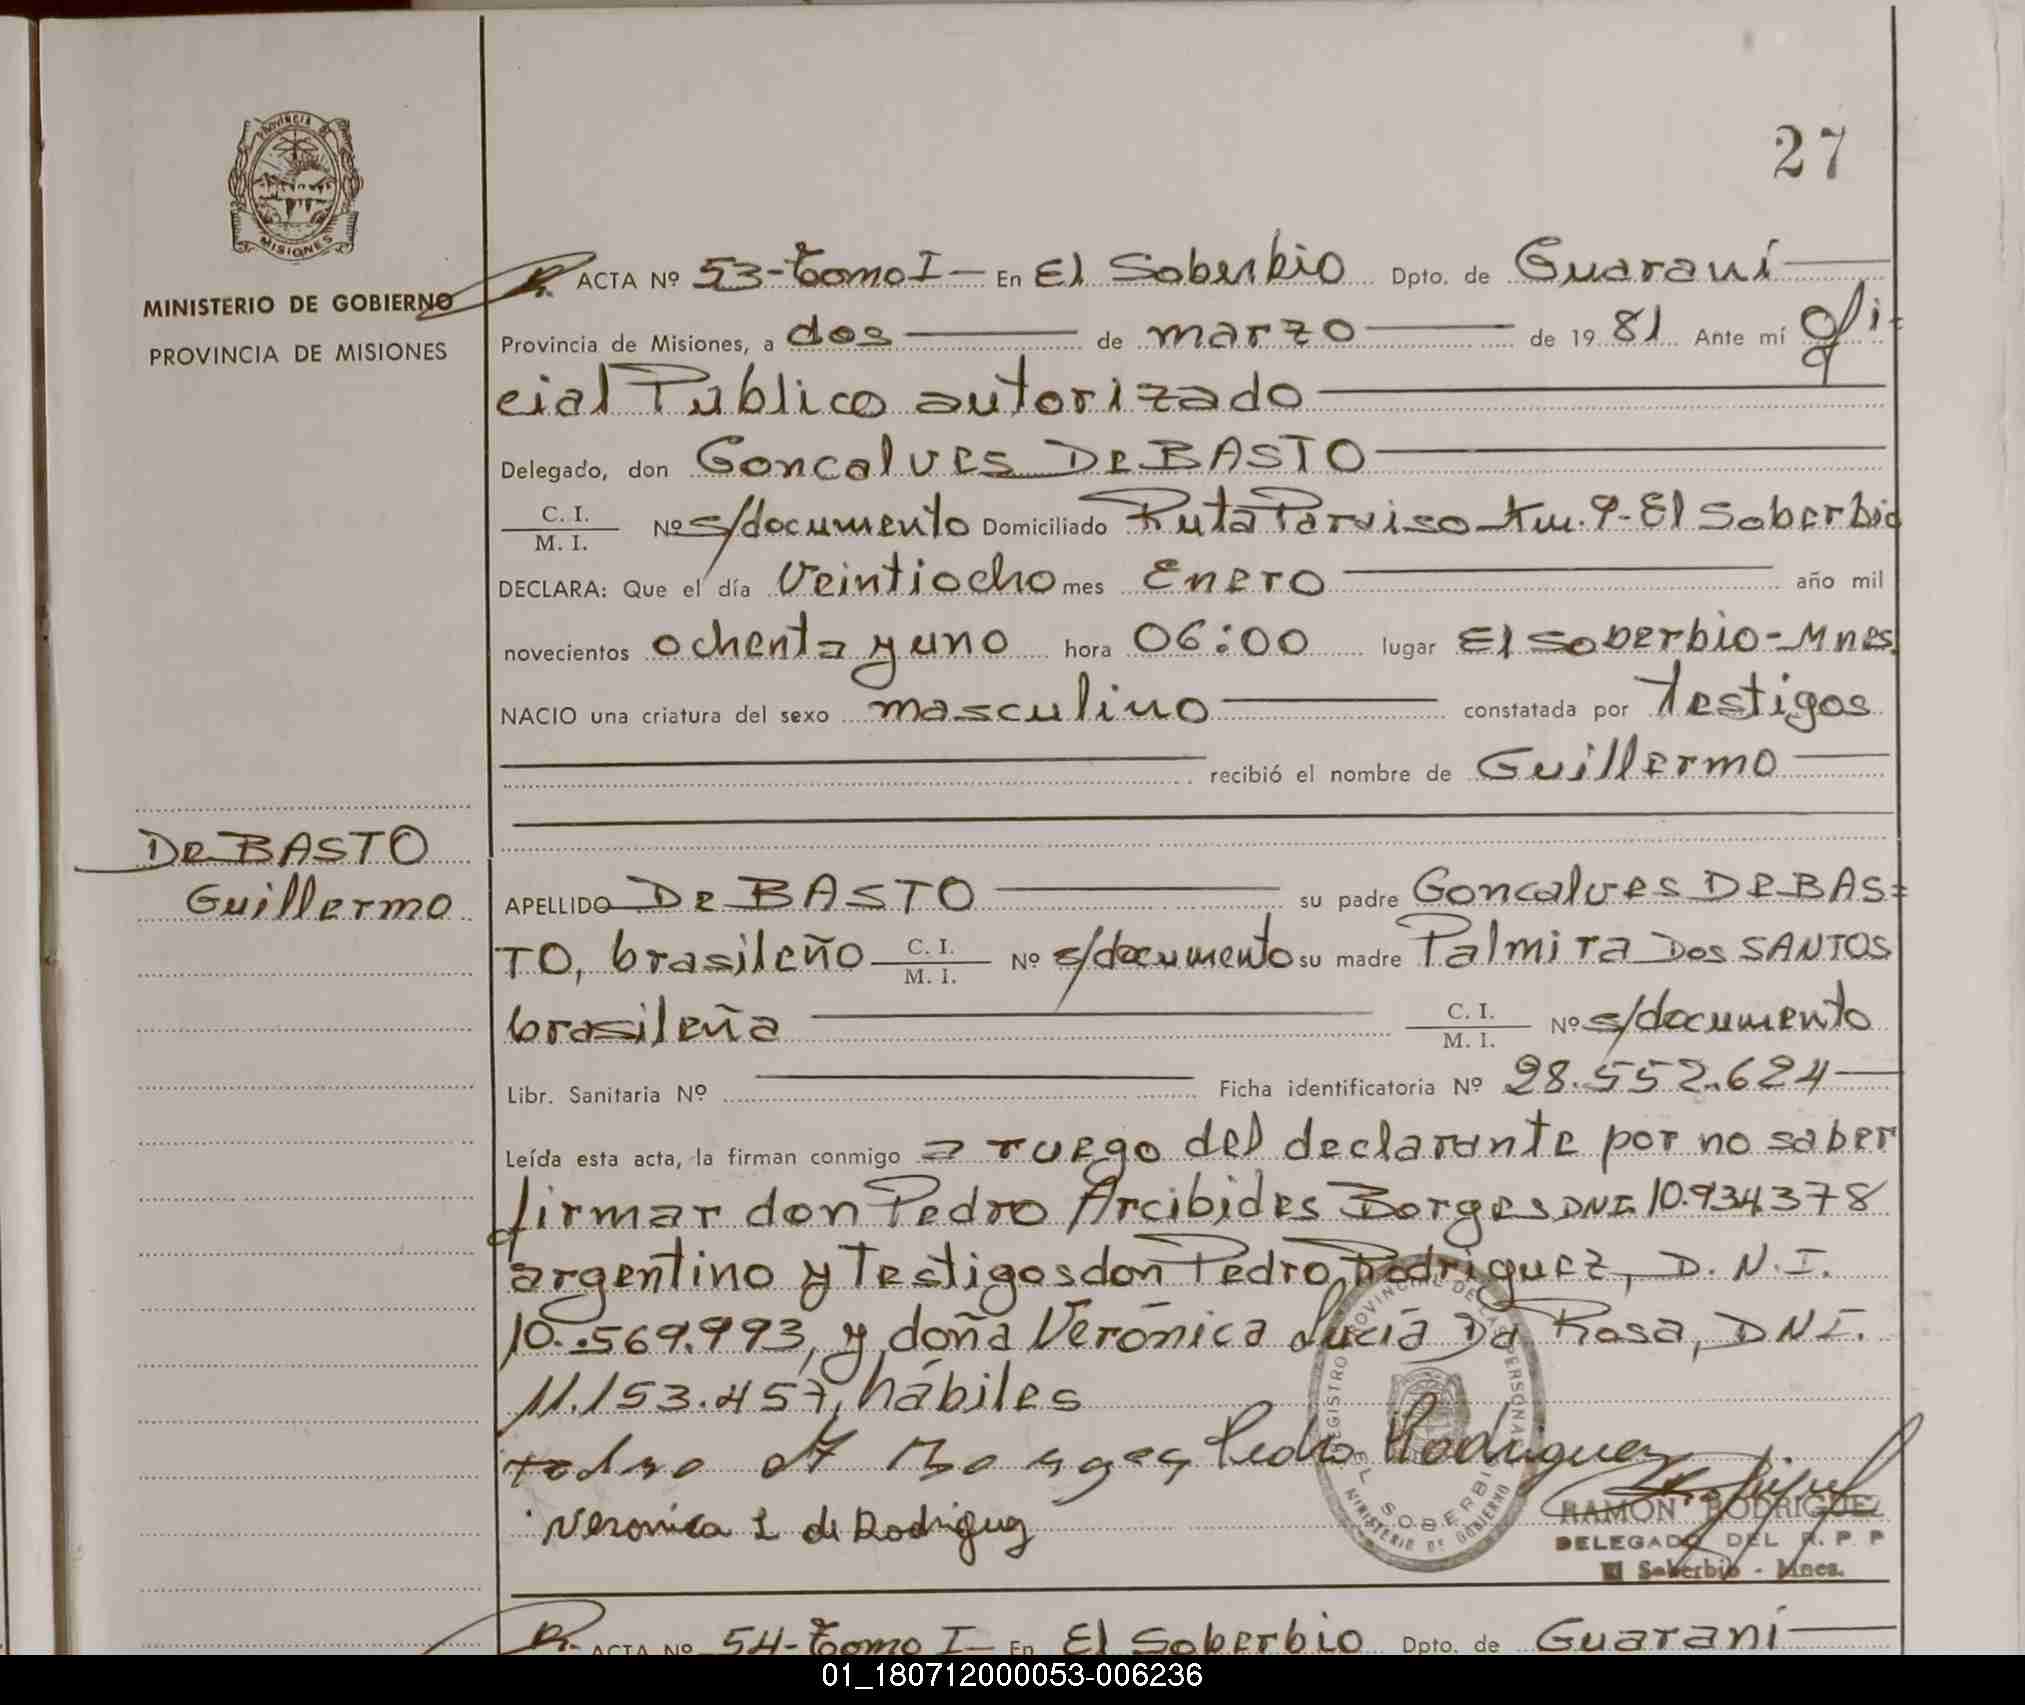 27
PROVINCIA DE
MISIONES
MINISTERIO DE GOBIERNO
PROVINCIA DE MISIONES
ACTA Nº 53-Tomo I- En El Soberbio Dpto. de Guaraní
Provincia de Misiones, a dos de marzo de 1981 Ante mí Ofi-
cial Público autorizado
Delegado, don Goncalves De BASTO
C. I.
M. I. Nº s/documento Domiciliado Ruta Parviso Km. 9-El Soberbio
DECLARA: Que el día Veintiocho mes Enero año mil
novecientos ochenta y uno hora 06:00 lugar El Soberbio-Mnes.
NACIO una criatura del sexo masculino constatada por Testigos
recibió el nombre de Guillermo
De BASTO
Guillermo
APELLIDO De BASTO su padre Goncalves De BAS=
TO, brasileño C. I.
M. I. Nº s/documento su madre Palmira Dos SANTOS
brasileña C. I.
M. I. Nº s/documento
Libr. Sanitaria Nº Ficha identificatoria Nº 28.552.624
Leída esta acta, la firman conmigo a ruego del declarante por no saber
firmar don Pedro Arcibides Borges DNI. 10.934.378
argentino y Testigos don Pedro Rodriguez, D. N. I.
10.569.993, y doña Verónica Lucía Da Rosa, DNI.
11.153.457, hábiles
Pedro A Borges Pedro Rodriguez
Veronica L de Rodriguez
REGISTRO PROVINCIAL DE LAS PERSONAS
EL SOBERBIO
MINISTERIO DE GOBIERNO
RAMON RODRIGUEZ
DELEGADO DEL R. P. P
El Soberbio - Mnes.
ACTA Nº 54-Tomo I- En El Soberbio Dpto. de Guaraní
01_180712000053-006236